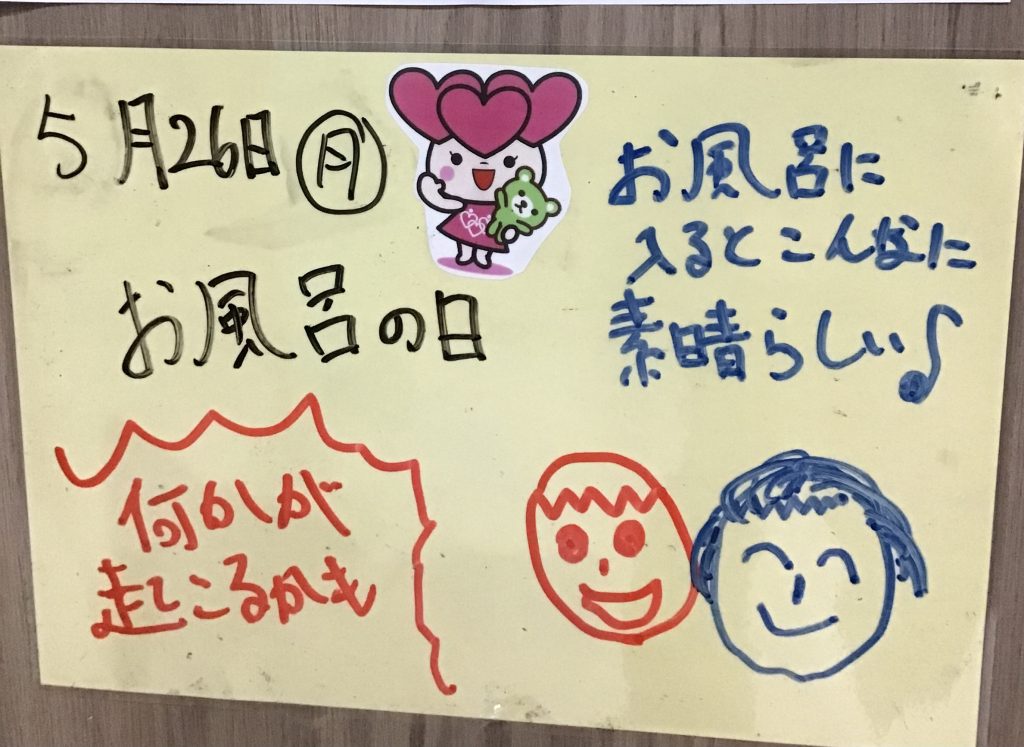 5月26日(月)
お風呂の日
お風呂に
入るとこんなに
素晴らしい♪
何かが
起こるかも